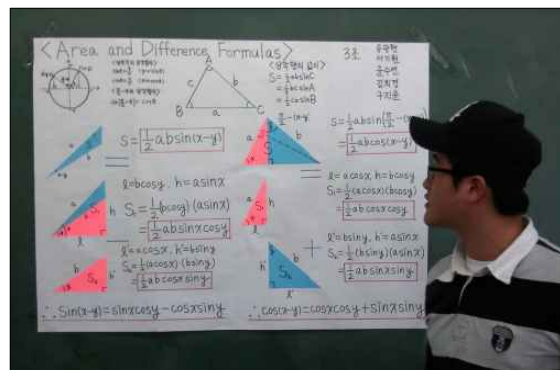 <Area and Difference Formulas>
3조
A
B
C
a
b
c
S = ½absinC
= ½bcsinA
= ½casinB
S = ½absin(x-y)
l = bcosy, h = asinx
S₁ = ½(bcosy)(asinx)
= ½absinxcosy
l' = acosx, h' = bsiny
S₂ = ½(acosx)(bsiny)
= ½abcosxsiny
∴ Sin(x-y) = sinxcosy - cosxsiny
= ½abcos(x-y)
l = acosx, h = bcosy
S₁ = ½(acosx)(bcosy)
= ½abcosxcosy
l' = bsiny, h' = asinx
S₂ = ½(bsiny)(asinx)
= ½absinxsiny
∴ cos(x-y) = cosxcosy + sinxsiny